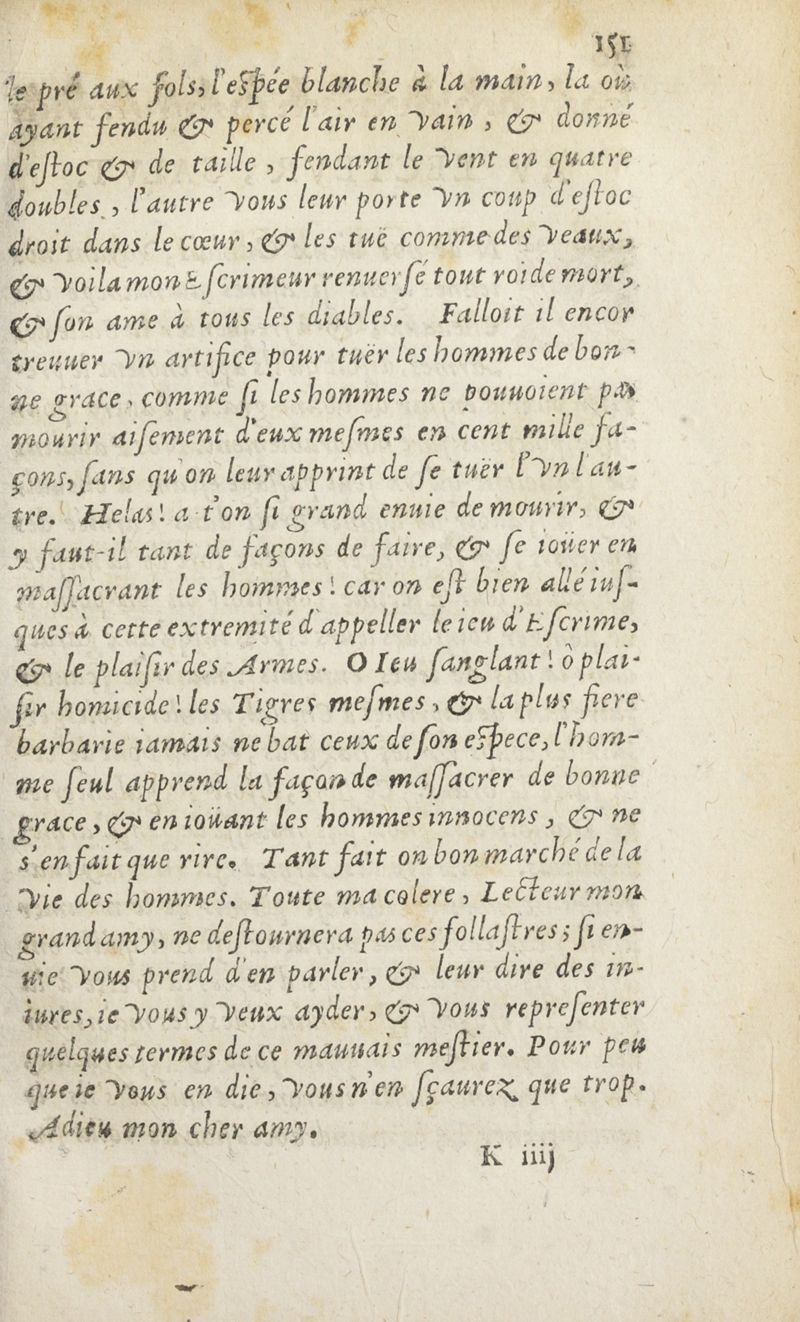 151
le pré aux fols, l'espée blanche à la main, la où
ayant fendu & percé l'air en vain, & donné
d'eſtoc & de taille, fendant le vent en quatre
doubles, l'autre vous leur porte vn coup d'eſtoc
droit dans le cœur, & les tuë comme des veaux,
& voila mon Eſcrimeur renuerſé tout roide mort,
& ſon ame à tous les diables. Falloit il encor
treuuer vn artifice pour tuër les hommes de bon-
ne grace, comme ſi les hommes ne pouuoient pas
mourir aiſement d'eux meſmes en cent mille fa-
çons, ſans qu'on leur apprint de ſe tuër l'vn l'au-
tre. Helas! a-t'on ſi grand enuie de mourir, &
y faut-il tant de façons de faire, & ſe ioüer en
maſſacrant les hommes! car on eſt bien allé iuſ-
ques à cette extremité d'appeller le ieu d'Eſcrime,
& le plaiſir des Armes. O Ieu ſanglant! ô plai-
ſir homicide! les Tigres meſmes, & la plus fiere
barbarie iamais ne bat ceux de ſon eſpece, l'hom-
me ſeul apprend la façon de maſſacrer de bonne
grace, & en ioüant les hommes innocens, & ne
s'en fait que rire. Tant fait on bon marché de la
vie des hommes. Toute ma colere, Lecteur mon
grand amy, ne deſtournera pas ces follaſtres; ſi en-
uie vous prend d'en parler, & leur dire des in-
iures, ie vous y veux ayder, & vous repreſenter
quelques termes de ce mauuais meſtier. Pour peu
que ie vous en die, vous n'en ſçaurez que trop.
Adieu mon cher amy.
K iiij